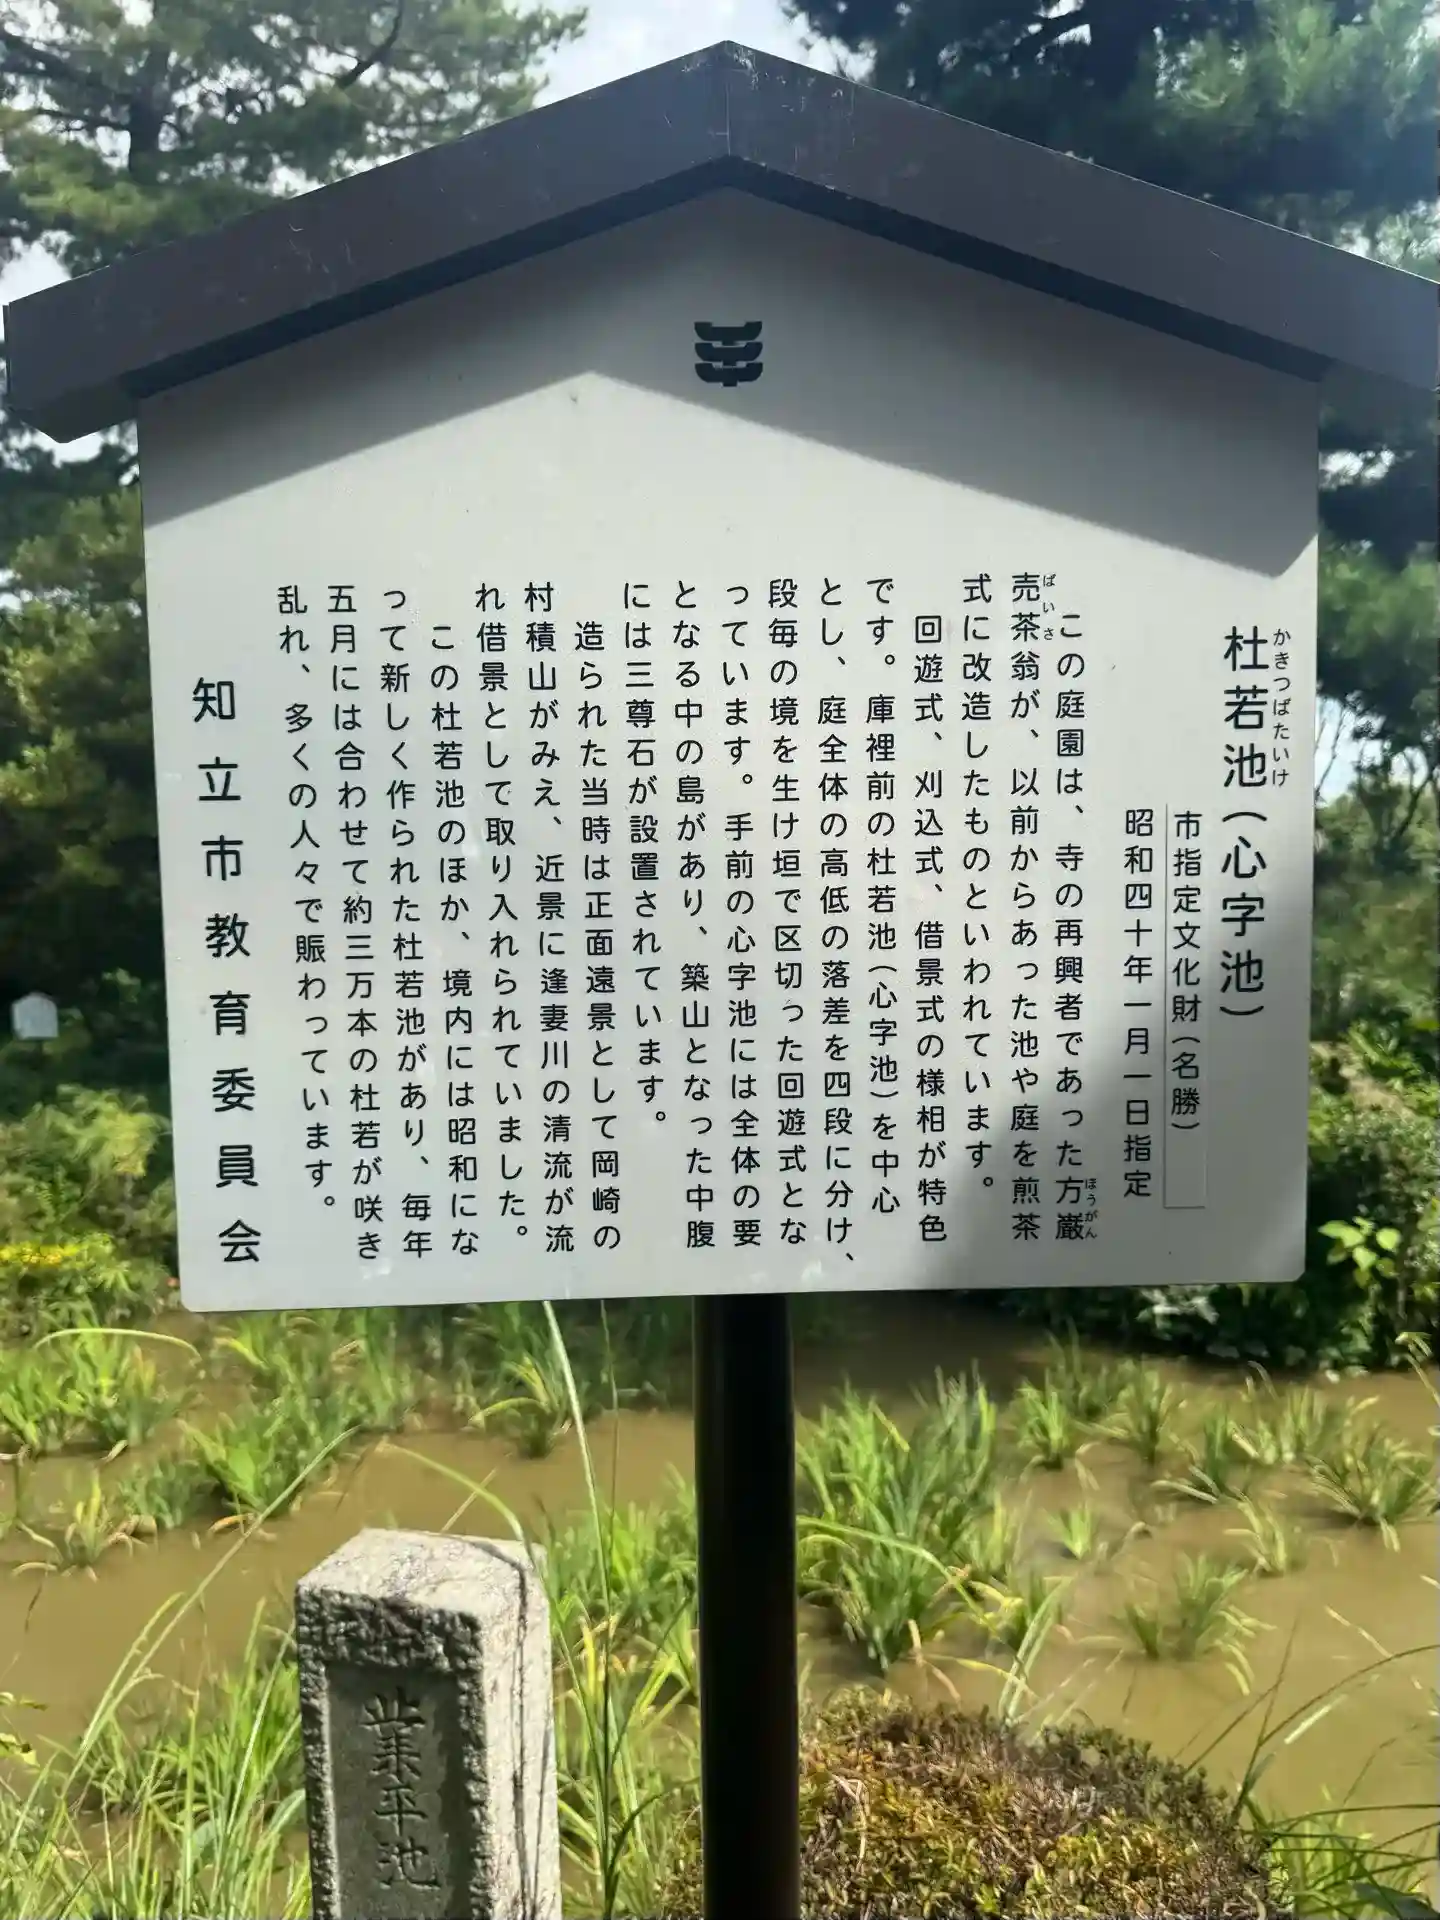 杜若池(心字池)
かきつばたいけ
市指定文化財(名勝)
昭和四十年一月一日指定
この庭園は、寺の再興者であった方巌
ほうがん
売茶翁が、以前からあった池や庭を煎茶
ばいさ
式に改造したものといわれています。
回遊式、刈込式、借景式の様相が特色
です。庫裡前の杜若池(心字池)を中心
とし、庭全体の高低の落差を四段に分け、
段毎の境を生け垣で区切った回遊式とな
っています。手前の心字池には全体の要
となる中の島があり、築山となった中腹
には三尊石が設置されています。
造られた当時は正面遠景として岡崎の
村積山がみえ、近景に逢妻川の清流が流
れ借景として取り入れられていました。
この杜若池のほか、境内には昭和にな
って新しく作られた杜若池があり、毎年
五月には合わせて約三万本の杜若が咲き
乱れ、多くの人々で賑わっています。
知立市教育委員会
業平池